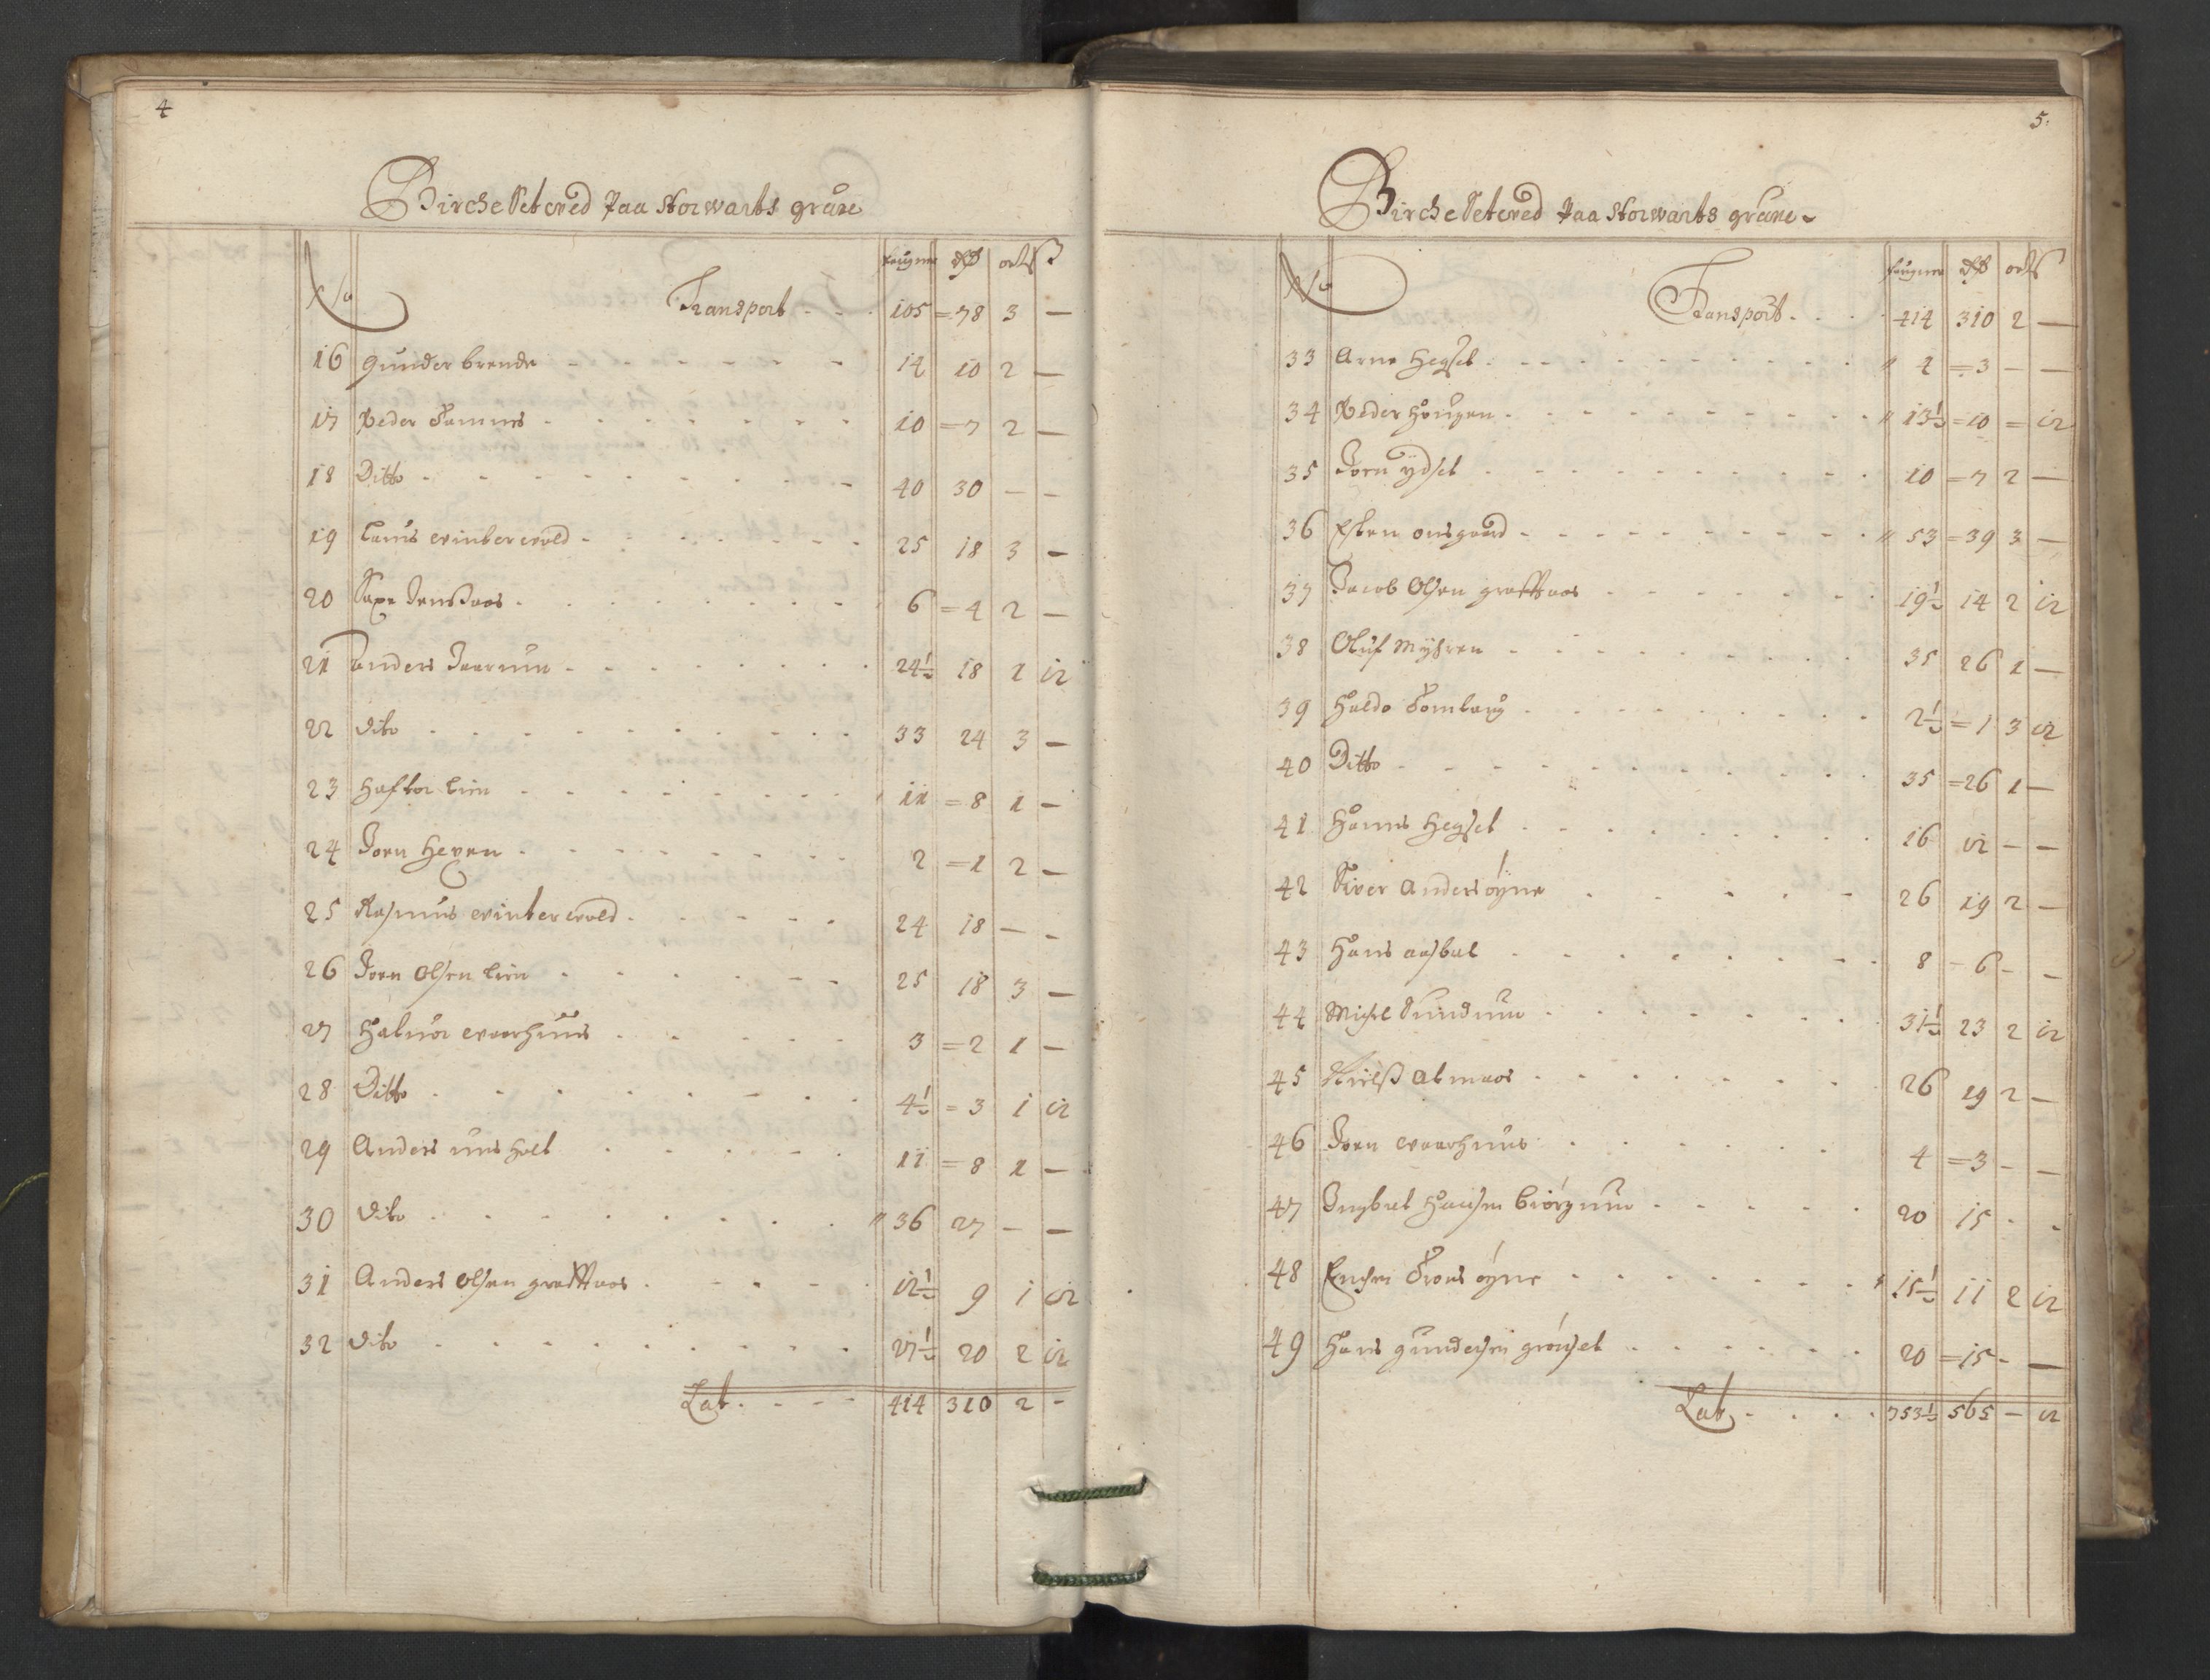 4
Birche Setwed Paa Storwarts grube
No faugner rdr ort s
Transport - - - 105 = 78 3 —
16 gunder brende - - - - - - 14 10 2 —
17 Peder Tamnes - - - - - - 10 = 7 2 —
18 Ditto - - - - - - - - 40 30 — -
19 Lauris winterwold - - - - - - 25 18 3 -
20 - - - - - - - 6 = 4 2 —
21 anders - - - - - - - 24½ 18 1 12
22 dito - - - - - - - - 33 24 3 —
23 Haftor lien - - - - - - - 11 = 8 1 -
24 Joen Heven - - - - - - - 2 = 1 2 —
25 Rasmus winterwold - - - - - 24 18 — -
26 Joen Olsen lien - - - - - - 25 18 3 —
27 Haluor waarhuus - - - - - 3 = 2 1 —
28 Ditto - - - - - - - - 4½ = 3 1 12
29 Anders holt - - - - - 11 = 8 1 —
30 dito - - - - - - - - " 36 27 - —
31 Anders Olsen graffaas - - - - 12½ 9 1 12
32 dito - - - - - - - - 27½ 20 2 12
Lat. - - - 414 310 2 -
5.
Birche Setwed Paa Storwarts grube
No faugner rdr ort s
Transport - - - 414 310 2 —
33 Arne Hegset - - - - - - - " 4 = 3 - —
34 Peder Hougen - - - - - - - " 13½ = 10 = 12
35 Joen ydset - - - - - - - 10 = 7 2 —
36 Esten onsgaard - - - - - - - " 53 = 39 3 —
37 Jacob Olsen graffaas - - - - - 19½ 14 2 12
38 Oluf Myhren - - - - - - 35 26 1 —
39 Haldo - - - - - - 2½ = 1 3 12
40 Ditto - - - - - - - - 35 = 26 1 —
41 Hanns Hegset - - - - - - 16 12 - —
42 Siver Andersøyne - - - - - 26 19 2 —
43 Hans aasbal - - - - - - 8 - 6 - -
44 Michel Sundum - - - - - - 31½ 23 2 12
45 Nielß Abmoos - - - - - - 26 19 2 —
46 Joen waarhuus - - - - - 4 = 3 - —
47 Ingbret Hansen biörgum - - - - 20 15 - -
48 Trons øyne - - - - - - 15½ 11 2 12
49 Hans gundersen grönset - - - - - 20 = 15 - —
Lat. - - - 753½ 565 — 12